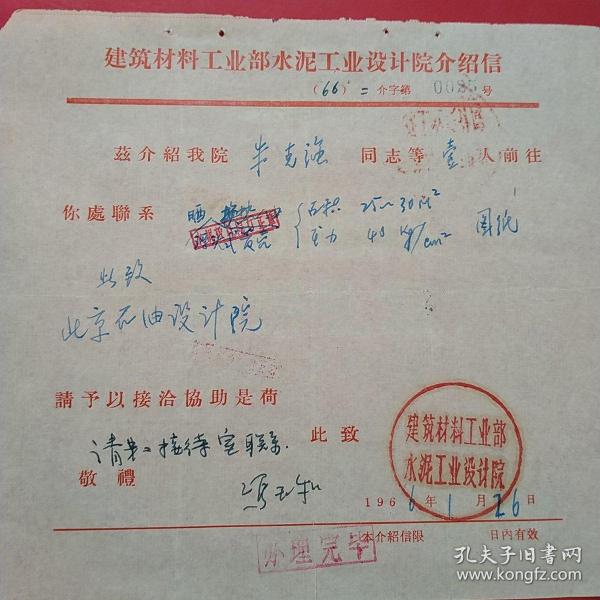 建筑材料工业部水泥工业设计院介绍信
(66)二介字第 0085 号
茲介紹我院 朱克强 同志等 壹 人前往
你處聯系 晒 面积 25~30 m² 图纸
压力 40 kg/cm²
此致
北京石油设计院
請予以接洽協助是荷
请第二接待室联系 此致
敬禮
建筑材料工业部
水泥工业设计院
1966年1月26日
本介紹信限 日內有效
办理完毕
孔夫子旧书网
www.kongfz.com